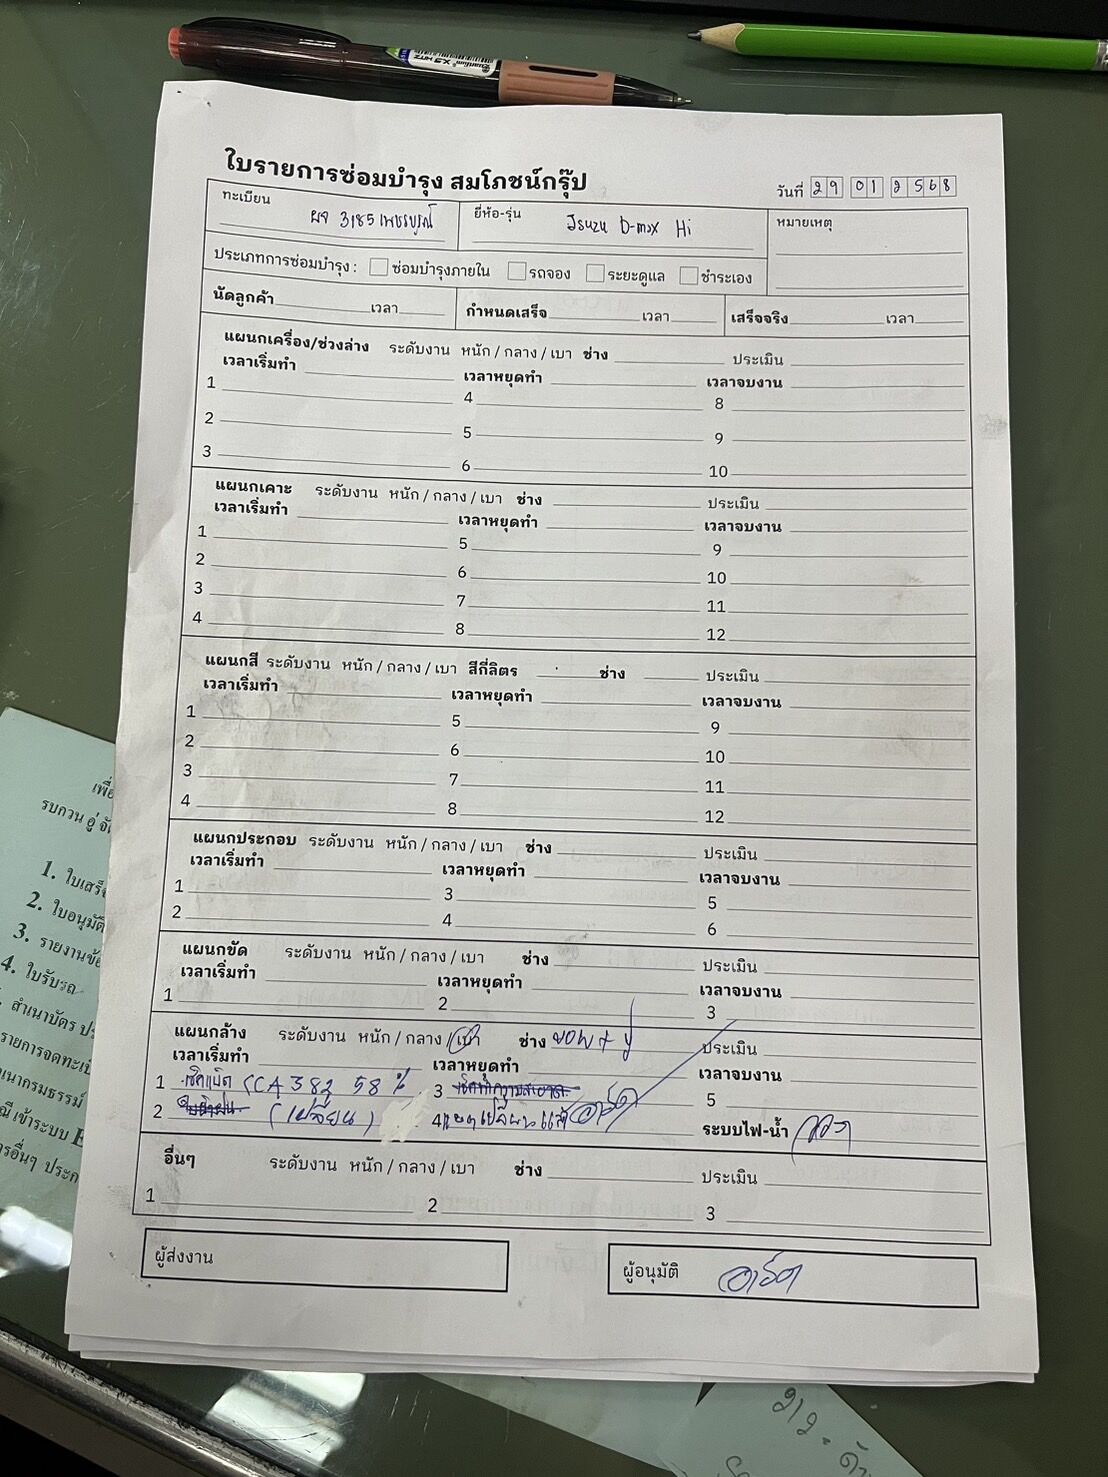 ใบรายการซ่อมบำรุง สมโภชน์กรุ๊ป
วันที่ 29 01 2568
ทะเบียน ผจ 3185 เพชรบูรณ์ ยี่ห้อ-รุ่น Isuzu D-max Hi หมายเหตุ
ประเภทการซ่อมบำรุง : ซ่อมบำรุงภายใน รถจอง ระยะดูแล ชำระเอง
นัดลูกค้า เวลา กำหนดเสร็จ เวลา เสร็จจริง เวลา
แผนกเครื่อง/ช่วงล่าง ระดับงาน หนัก / กลาง / เบา ช่าง ประเมิน
เวลาเริ่มทำ เวลาหยุดทำ เวลาจบงาน
1 4 8
2 5 9
3 6 10
แผนกเคาะ ระดับงาน หนัก / กลาง / เบา ช่าง ประเมิน
เวลาเริ่มทำ เวลาหยุดทำ เวลาจบงาน
1 5 9
2 6 10
3 7 11
4 8 12
แผนกสี ระดับงาน หนัก / กลาง / เบา สีกี่ลิตร ช่าง ประเมิน
เวลาเริ่มทำ เวลาหยุดทำ เวลาจบงาน
1 5 9
2 6 10
3 7 11
4 8 12
แผนกประกอบ ระดับงาน หนัก / กลาง / เบา ช่าง ประเมิน
เวลาเริ่มทำ เวลาหยุดทำ เวลาจบงาน
1 3 5
2 4 6
แผนกขัด ระดับงาน หนัก / กลาง / เบา ช่าง ประเมิน
เวลาเริ่มทำ เวลาหยุดทำ เวลาจบงาน
1 2 3
แผนกล้าง ระดับงาน หนัก / กลาง / เบา ช่าง ประเมิน
เวลาเริ่มทำ เวลาหยุดทำ เวลาจบงาน
1 เช็คแบ็ต CCA 382 58 % 3 5
2 ใบปัดฝน (เปลี่ยน) 4 ระบบไฟ-น้ำ
อื่นๆ ระดับงาน หนัก / กลาง / เบา ช่าง ประเมิน
1 2 3
ผู้ส่งงาน ผู้อนุมัติ
เพื่อ
รบกวน อู่ จัด
1. ใบเสร็จ
2. ใบอนุมัติ
3. รายงานข้อ
4. ใบรับรถ
สำเนาบัตร ประ
รายการจดทะเบี